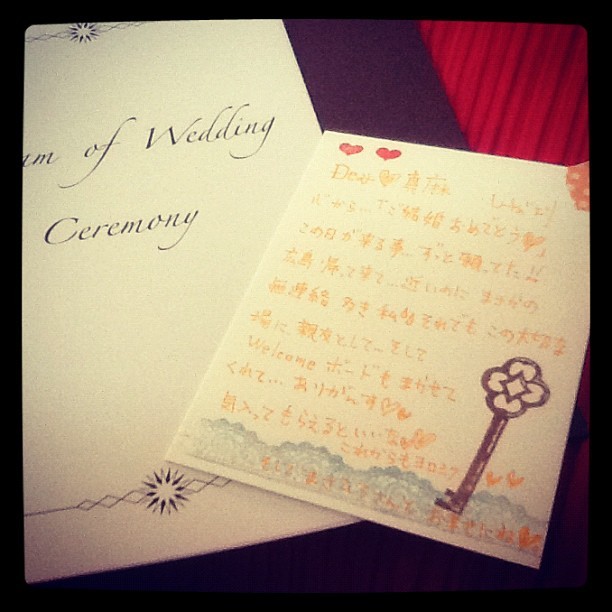 am of Wedding
Ceremony
Dear 真麻
心から...ご結婚おめでとう
この日が来る事...ずっと願ってた!!
広島帰って来て...近いのに まさかの
無連絡 なき私 それでも この大切な
場に 親友として...そして
Welcome ボードも まかせて
くれて... ありがとう
気入ってもらえるといいな
これからもヨロシク
そして まさ
お幸せにね